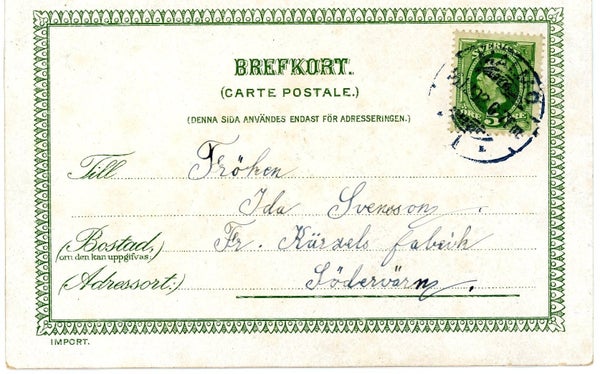 BREFKORT.
(CARTE POSTALE.)
(DENNA SIDA ANVÄNDES ENDAST FÖR ADRESSERINGEN.)
SVERIGE
5
Till Fröken
Ida Svensson.
(Bostad,) Fr. Kürzels fabrik
(om den kan uppgifvas)
Adressort:) Södervärn.
IMPORT.